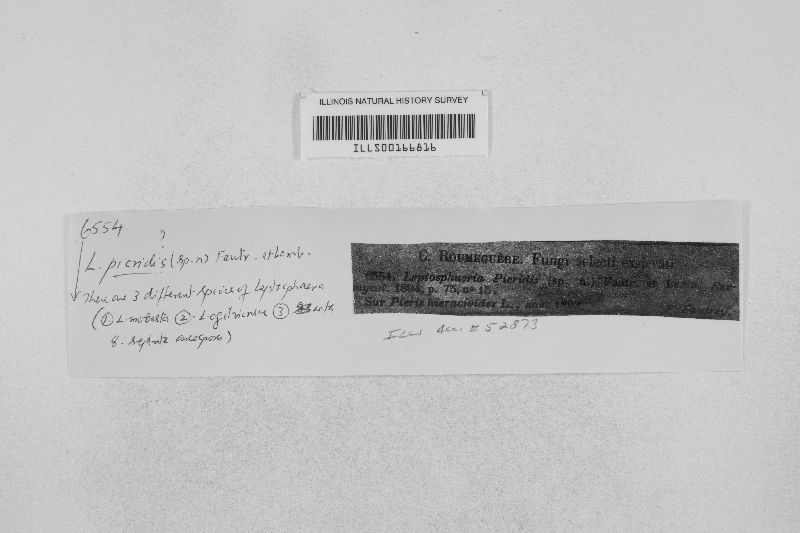 ILLINOIS NATURAL HISTORY SURVEY
ILLS00166816
6554
?
L. picridis (sp. n) Fautr. et Lamb.
There are 3 different species of Leptosphaeria
(① L. modesta ② L. ogilviensis ③ with
8-septate ascospores)
C. ROUMEGUÈRE. Fungi selecti exsiccati
6554. Leptosphaeria Picridis (sp. n.) Faut. et Lamb. Rev.
mycol. 1894, p. 75, nº 15.
Sur Picris hieracioides L.
Fautrey.
ILLS Acc. # 52873